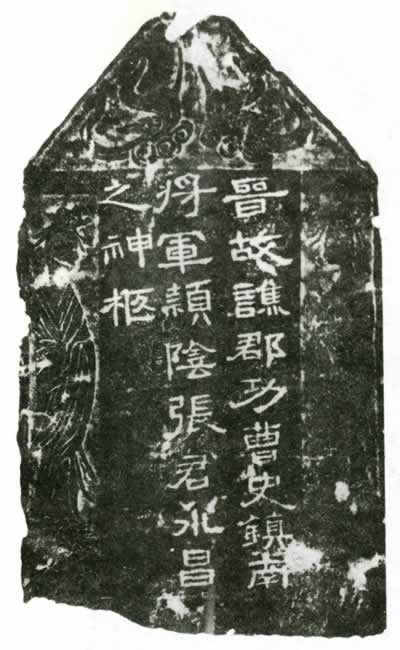 晉故譙郡功曹史鎮南
将軍頴陰張君永昌
之神柩